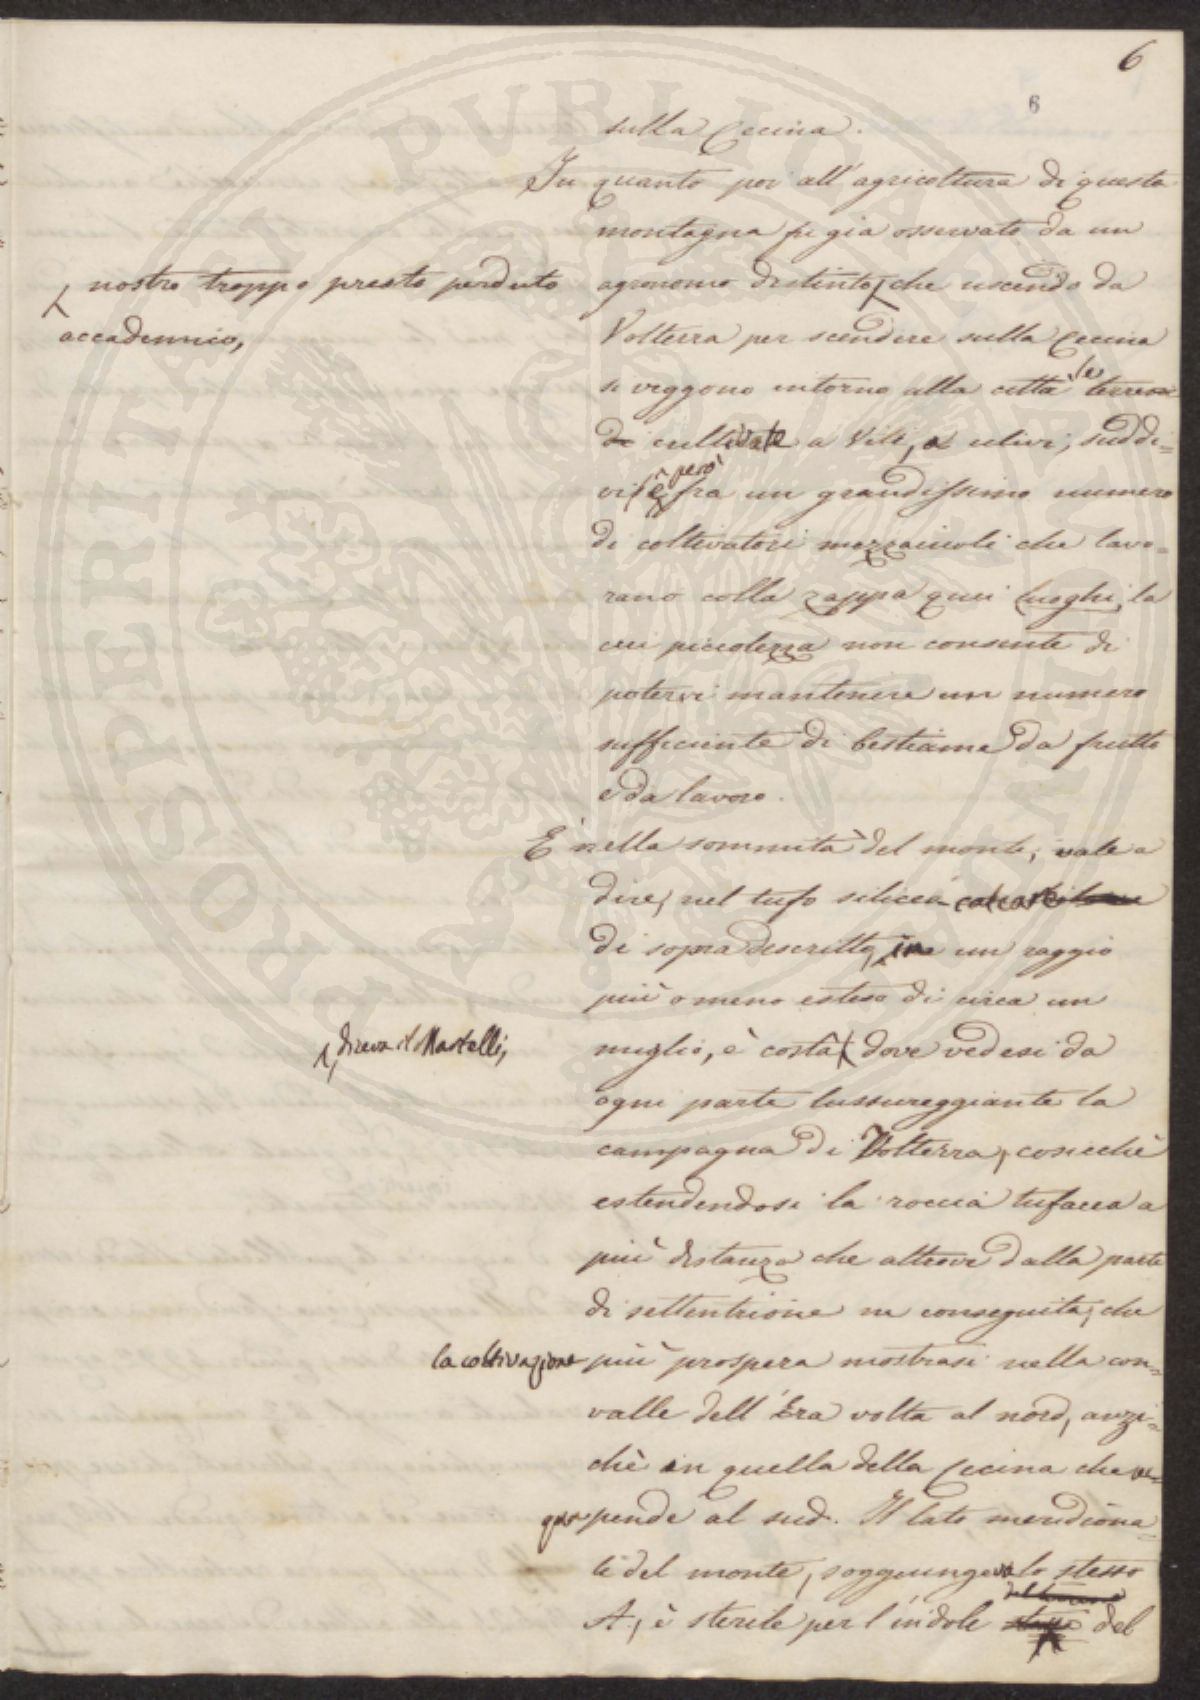 6
6
sulla Cecina.
In quanto poi all'agricoltura di questa
montagna fu già osservato da un
nostro troppo presto perduto
accademico,
agronomo distinto che uscendo da
Volterra per scendere sulla Cecina
si veggono intorno alla città le terre
cultivate a viti, a ulivi, suddi=
vise però fra un grandissimo numero
di coltivatori mezzaiuoli che lavo=
rano colla zappa quei luoghi, la
cui piccolezza non consente di
potervi mantenere un numero
sufficiente di bestiame da frutto
e da lavoro.
E' nella sommità del monte, vale a
dire, nel tufo siliceo-calcare
di sopra descritto, in un raggio
più o meno esteso di circa un
diceva il Martelli,
miglio, è costà dove vedesi da
ogni parte lussureggiante la
campagna di Volterra, cosicchè
estendendosi la roccia tufacea a
più distanza che altrove dalla parte
di settentrione ne conseguita, che
la coltivazione più prospera mostrasi nella con=
valle dell'Era volta al nord, anzi=
chè in quella della Cecina che
pende al sud. Il lato meridiona=
le del monte, soggiungeva lo stesso
A., è sterile per l'indole del
PROSPERITATI PVBLICAE AVGENDAE